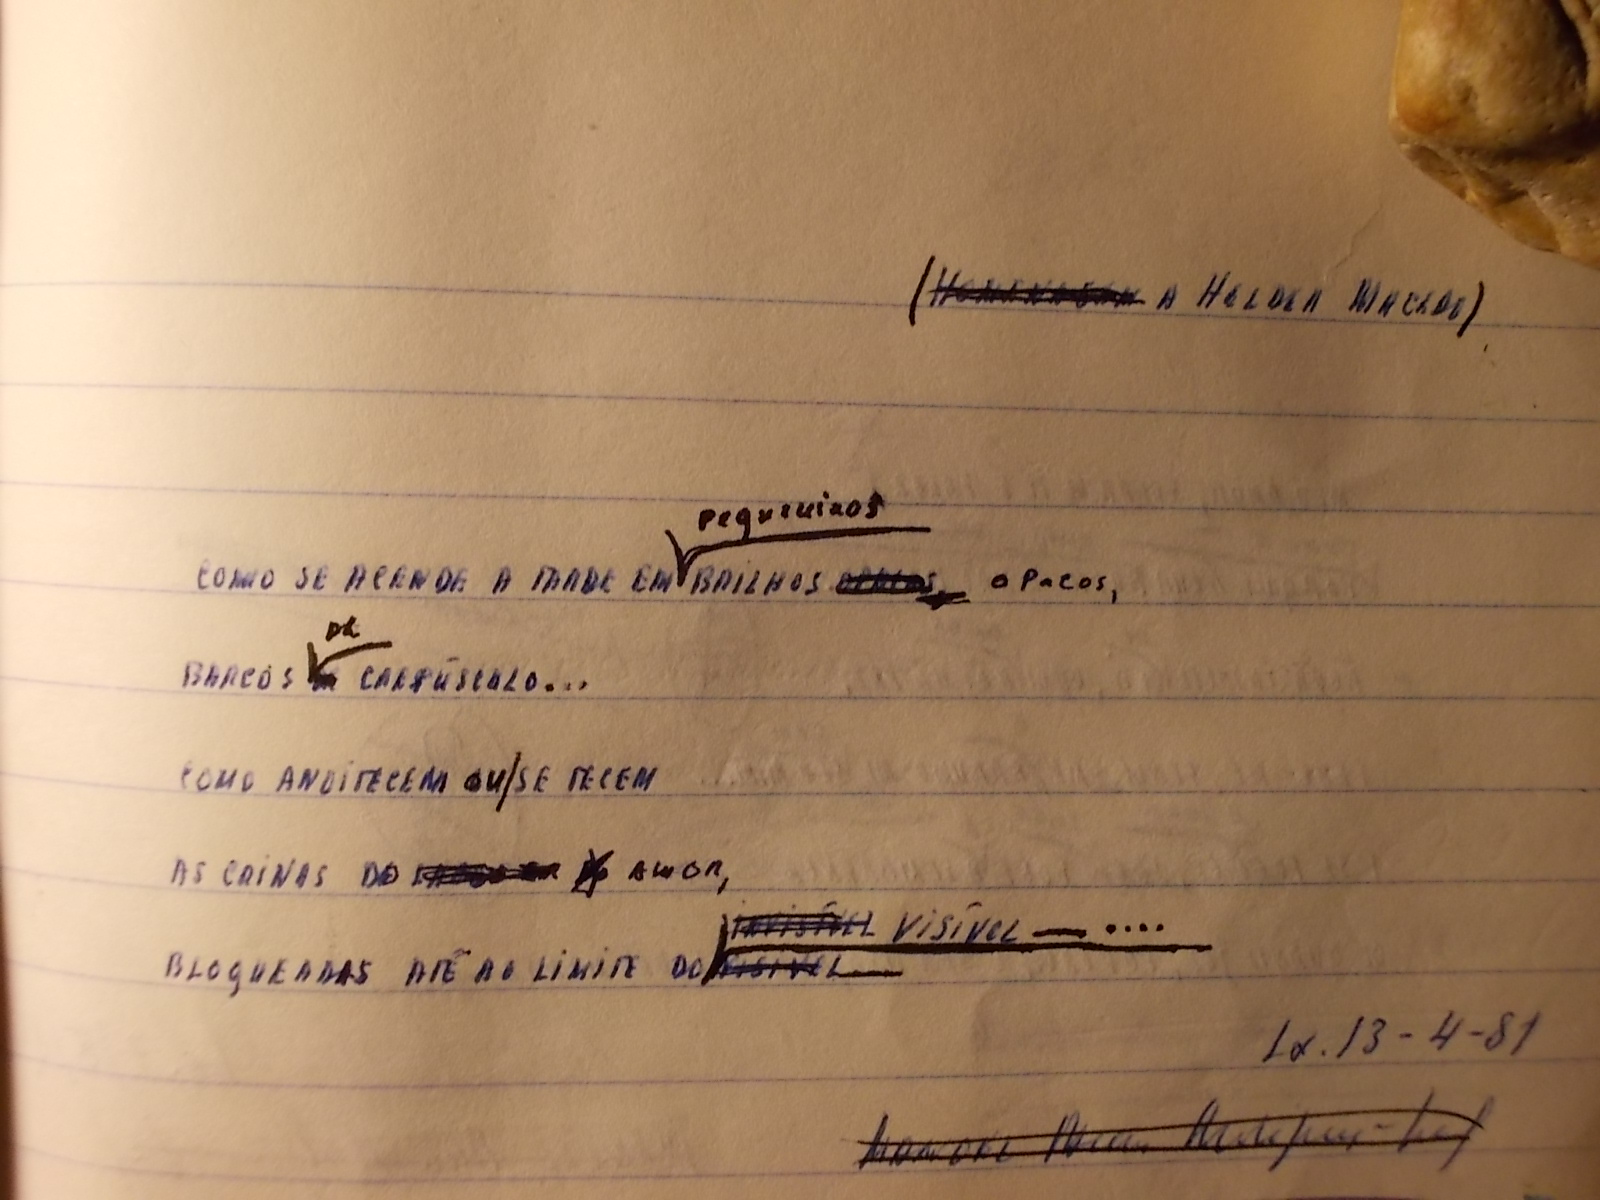 (HOMENAGEM A HELDER MACEDO)
pequeninos
COMO SE ACENDE A TARDE EM BRILHOS OPACOS, OPACOS,
DE
BARCOS CREPÚSCULO...
COMO ANOITECEM OU/SE TECEM
AS CRINAS DO AMOR,
INVISÍVEL VISÍVEL — ....
BLOQUEADAS ATÉ AO LIMITE DO VISÍVEL —
Lx. 13-4-81
MANUEL